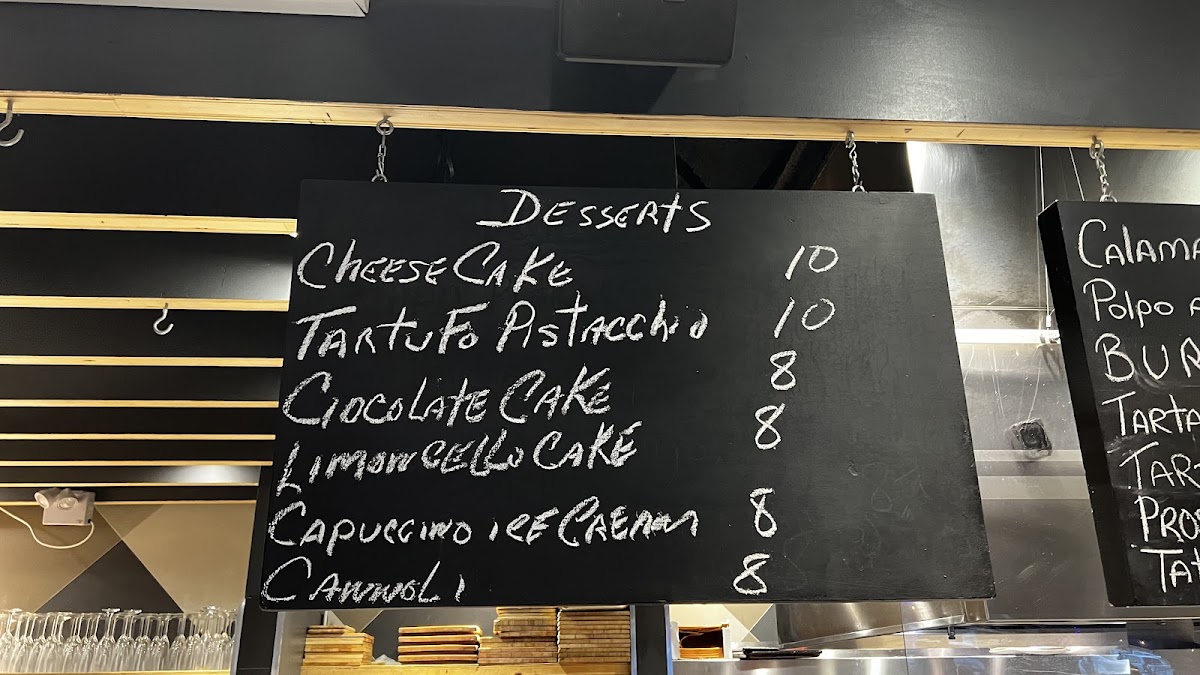 DESSERTS
CHEESE CAKE 10
TARTUFO PISTACCHIO 10
CIOCOLATE CAKE 8
LIMONCELLO CAKE 8
CAPUCCINO ICE CREAM 8
CANNOLI 8
CALAMA
POLPO
BUR
TARTA
TAR
PRO
TA